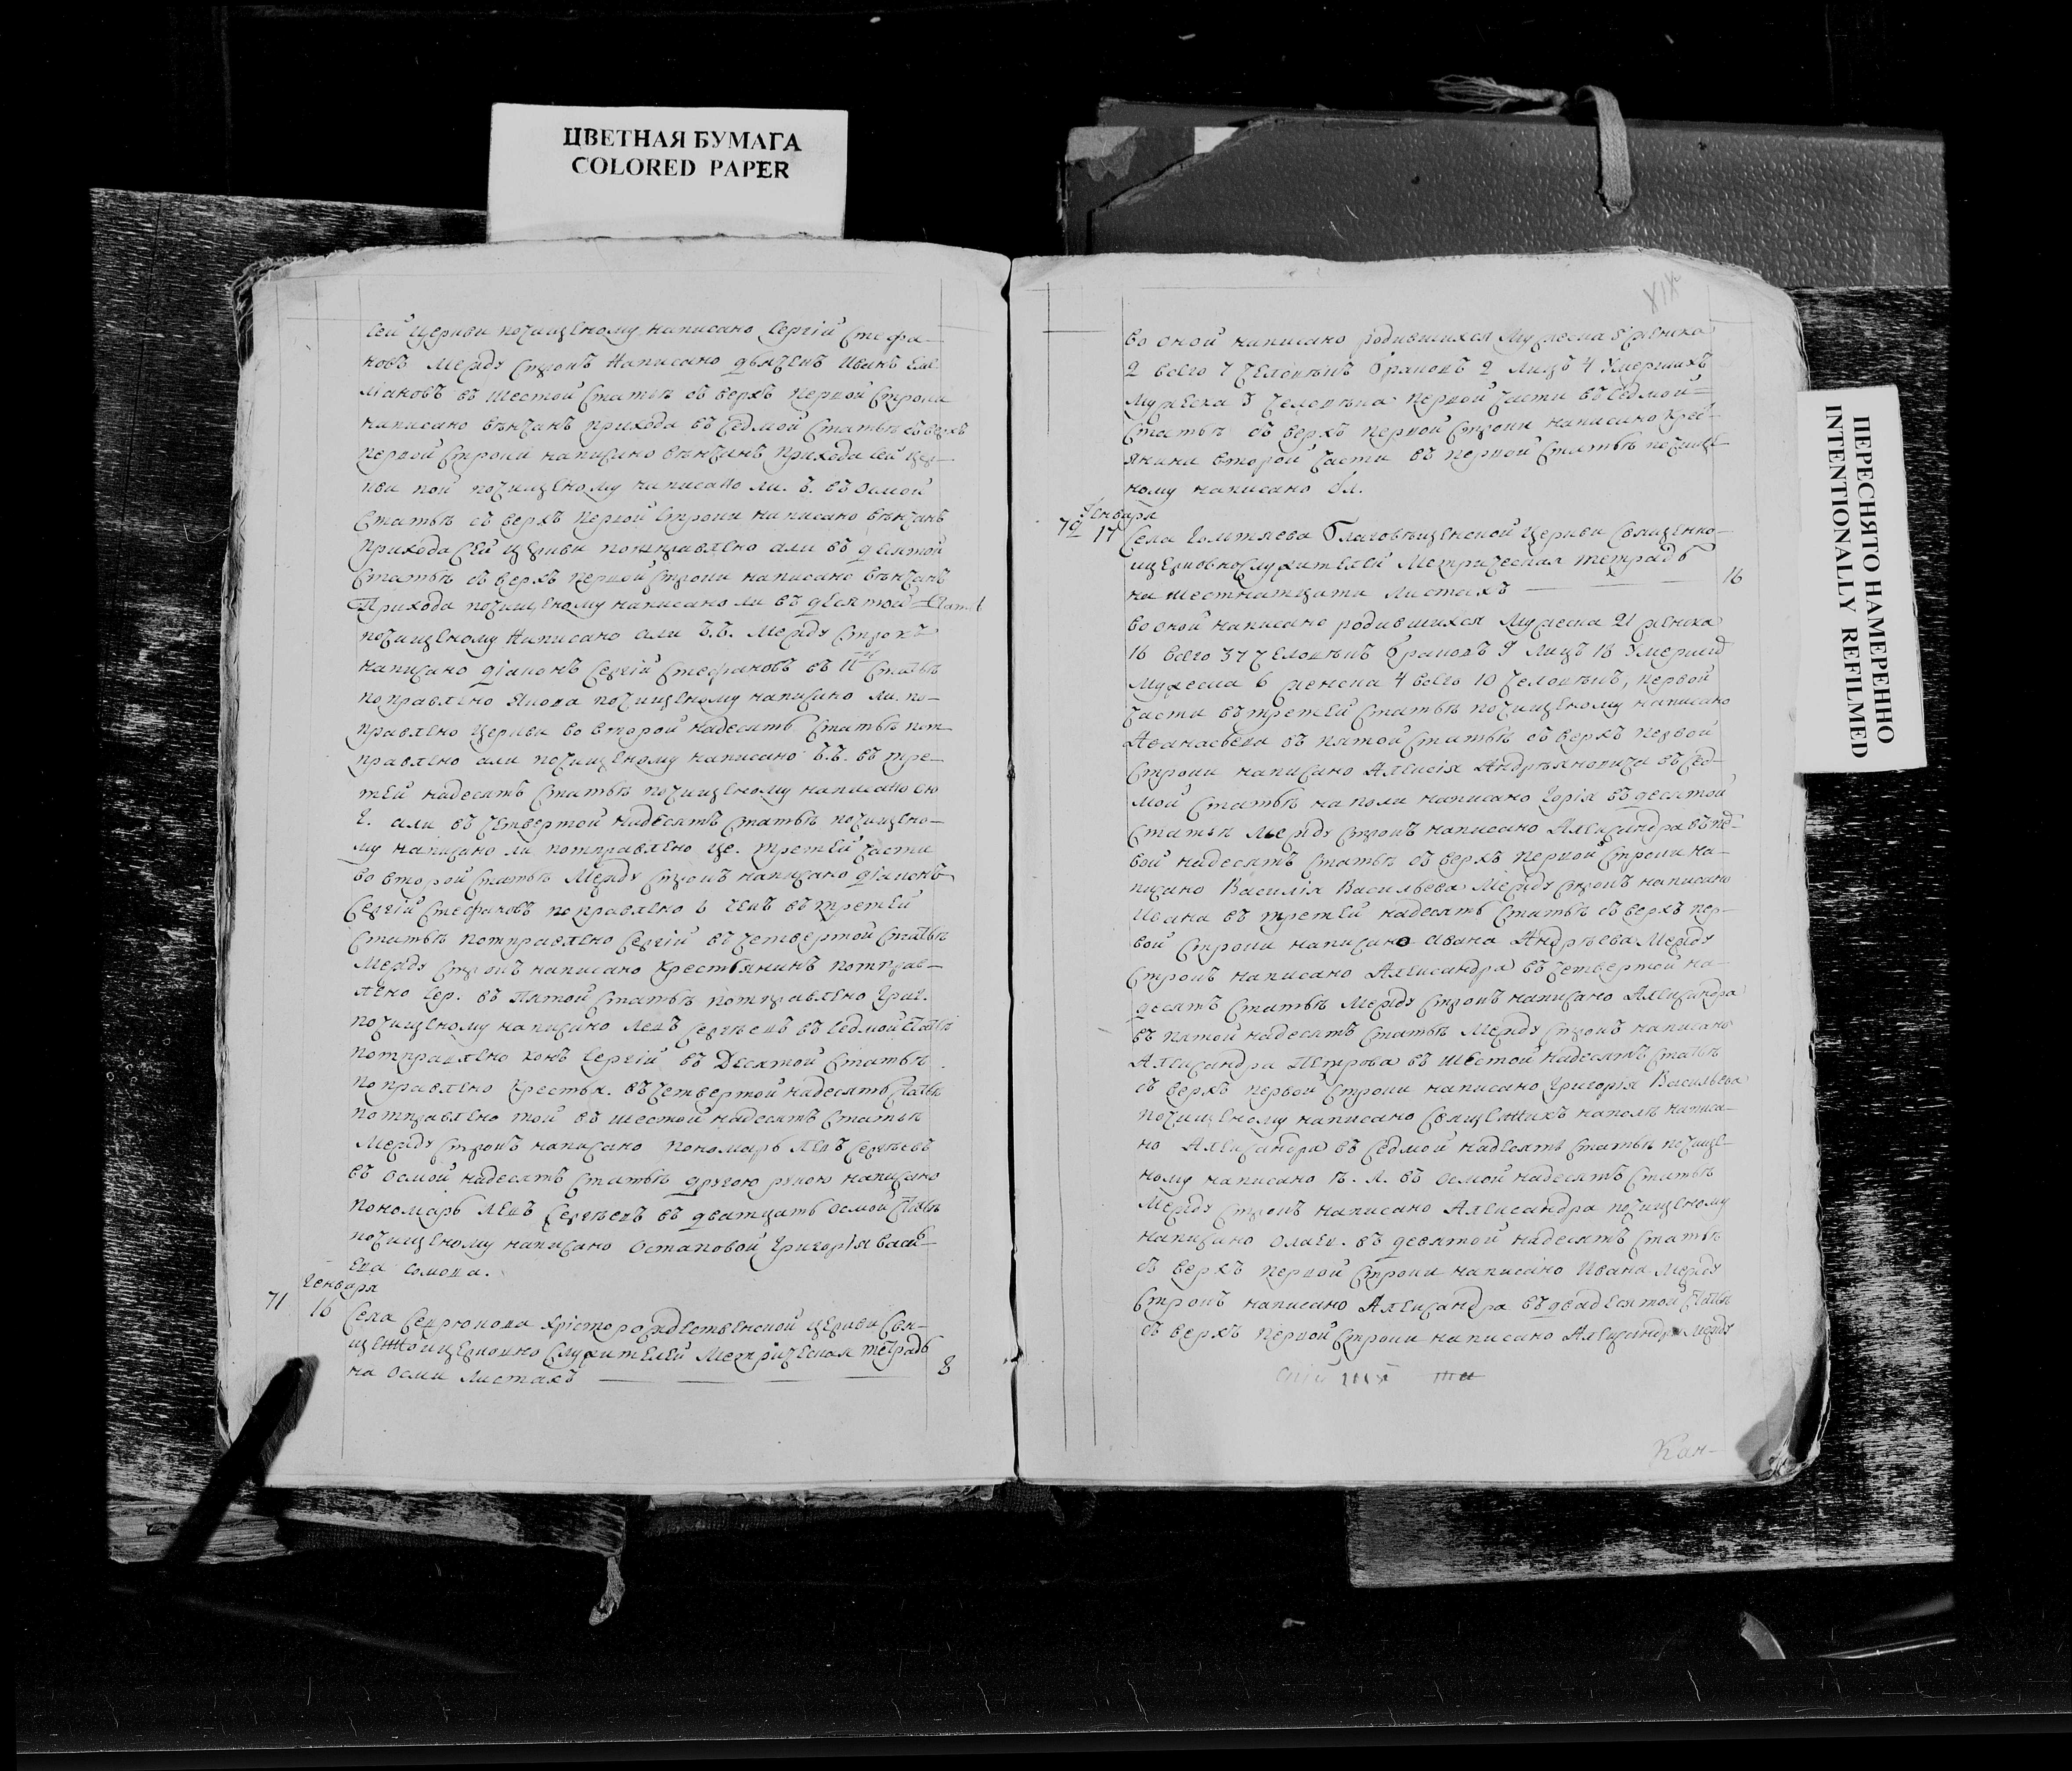 ЦВЕТНАЯ БУМАГА
COLORED PAPER
сей церкви почищеному написано Сергій Стефа-
новъ между строкъ написано дьячекъ Иванъ Еме
ліановъ въ шестой статьѣ съ верхъ первой строки
написано вѣнчанъ прихода въ седмой статьѣ съ верхъ
первой строки написано вѣнчанъ прихода сей цер-
кви почищеному написано ли. ъ. въ осмой
статьѣ съ верхъ первой строки написано вѣнчанъ
прихода сей церкви потправлено али въ девятой
статьѣ съ верхъ первой строки написано вѣнчанъ
прихода почищеному написано ли въ десятой статьѣ
почищеному написано али ъ.ъ. между строкъ
написано діаконъ Сергій Стефановъ въ 11й статьѣ
поправлено почищеному написано ли. по-
правлено церкви во второй надесять статьѣ пот
правлено али почищеному написано ъ.ъ. въ тре-
тей надесять статьѣ почищеному написано
али въ четвертой надесять статьѣ почищено-
му написано ли потправлено це. третей части
во второй статьѣ между строкъ написано діаконъ
Сергій Стефановъ поправлено въ третей
статьѣ потправлено Сергій въ четвертой статьѣ
между строкъ написано крестьянинъ потправ-
лено Сер. въ пятой статьѣ потправлено Григ.
почищеному написано Левъ Сергѣевъ въ седмой статьѣ
потправлено конъ Сергій въ десятой статьѣ
поправлено крестья. въ четвертой надесять статьѣ
потправлено той въ шестой надесять статьѣ
между строкъ написано пономарь Левъ Сергѣевъ
въ осмой надесять статьѣ другою рукою написано
пономарь Левъ Сергѣевъ въ дватцать осмой статьѣ
почищеному написано Остаповой Григорія Васи
ева
Генваря
71 16 Села Севрюкова Христорождественской церкви свя-
щенноицерковно служителей метрическая тетрадь
на осми листахъ 8
XIX
во оной написано родившихся мужеска 5 женска
2 всего 7 человѣкъ браковъ 2 лицъ 4 умершихъ
мужеска 3 человѣка первой части въ седмой
статьѣ съ верхъ первой строки написано крес
янина второй части въ первой статьѣ почище
ному написано
Генваря
72 17 Села Голтяева Благовѣщенской церкви священно-
ицерковнослужителей метрическая тетрадь
на шестнатцати листахъ 16
во оной написано родившихся мужеска 21 женска
16 всего 37 человѣкъ браковъ 9 лицъ 18 умершихъ
мужеска 6 женска 4 всего 10 человѣкъ, первой
части въ третей статьѣ почищеному написано
Аѳанасьева въ пятой статьѣ съ верхъ первой
строки написано Алексія Андреяновича въ сед-
мой статьѣ на поли написано въ десятой
статьи между строкъ написано Александра въ пер-
вой надесять статьѣ съ верхъ первой строки на-
писано Василія Васильева между строкъ написано
Ивана въ третей надесять статьѣ съ верхъ пер-
вой строки написано Ивана Андрѣева между
строкъ написано Александра въ четвертой на-
десять статьѣ между строкъ написано Александра
въ пятой надесять статьѣ между строкъ написано
Александра Петрова въ шестой надесять статьѣ
съ верхъ первой строки написано Григорія Васильева
почищеному написано священникъ наполѣ написа-
но Александра въ седмой надесять статьѣ почище-
ному написано въ осмой надесять статьѣ
между строкъ написано Александра почищеному
написано въ девятой надесять статьѣ
съ верхъ первой строки написано Ивана между
строкъ написано Александра въ двадесятой статьѣ
съ верхъ первой строки написано Александра между
Кан-
ПЕРЕСНЯТО НАМЕРЕННО
INTENTIONALLY REFILMED